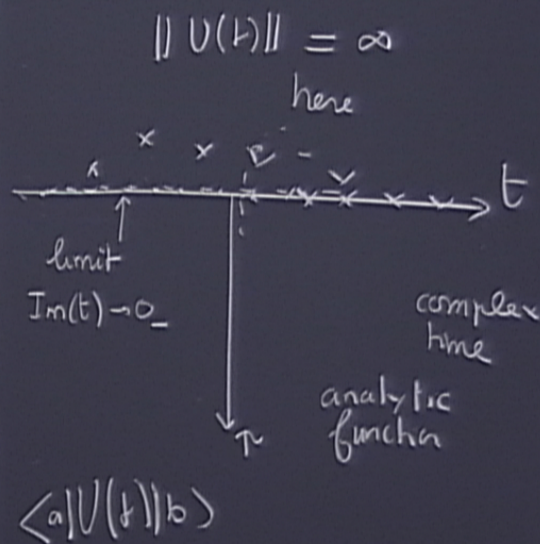 || U(t) || = ∞
here
t
limit
Im(t) → 0_
complex
time
τ
analytic
function
<a|U(t)|b>